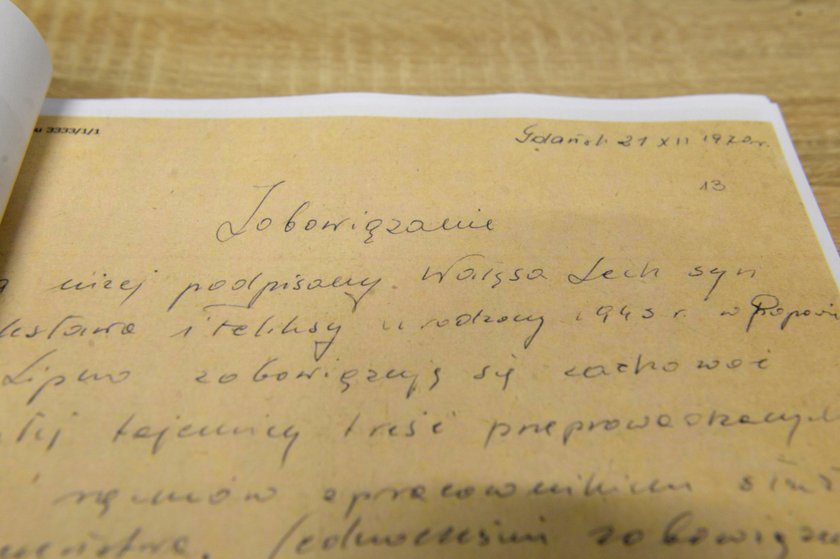 3333/1/1
Gdańsk 21 XII 1970 r.
13
Zobowiązanie
niżej podpisany Wałęsa Lech syn
i Feliksy urodzony 1943 r. w Popowi
Lipno zobowiązują się zachować
tajemnicy treść przeprowadzonych
z pracownikiem służ
Jednocześni zobowiąz